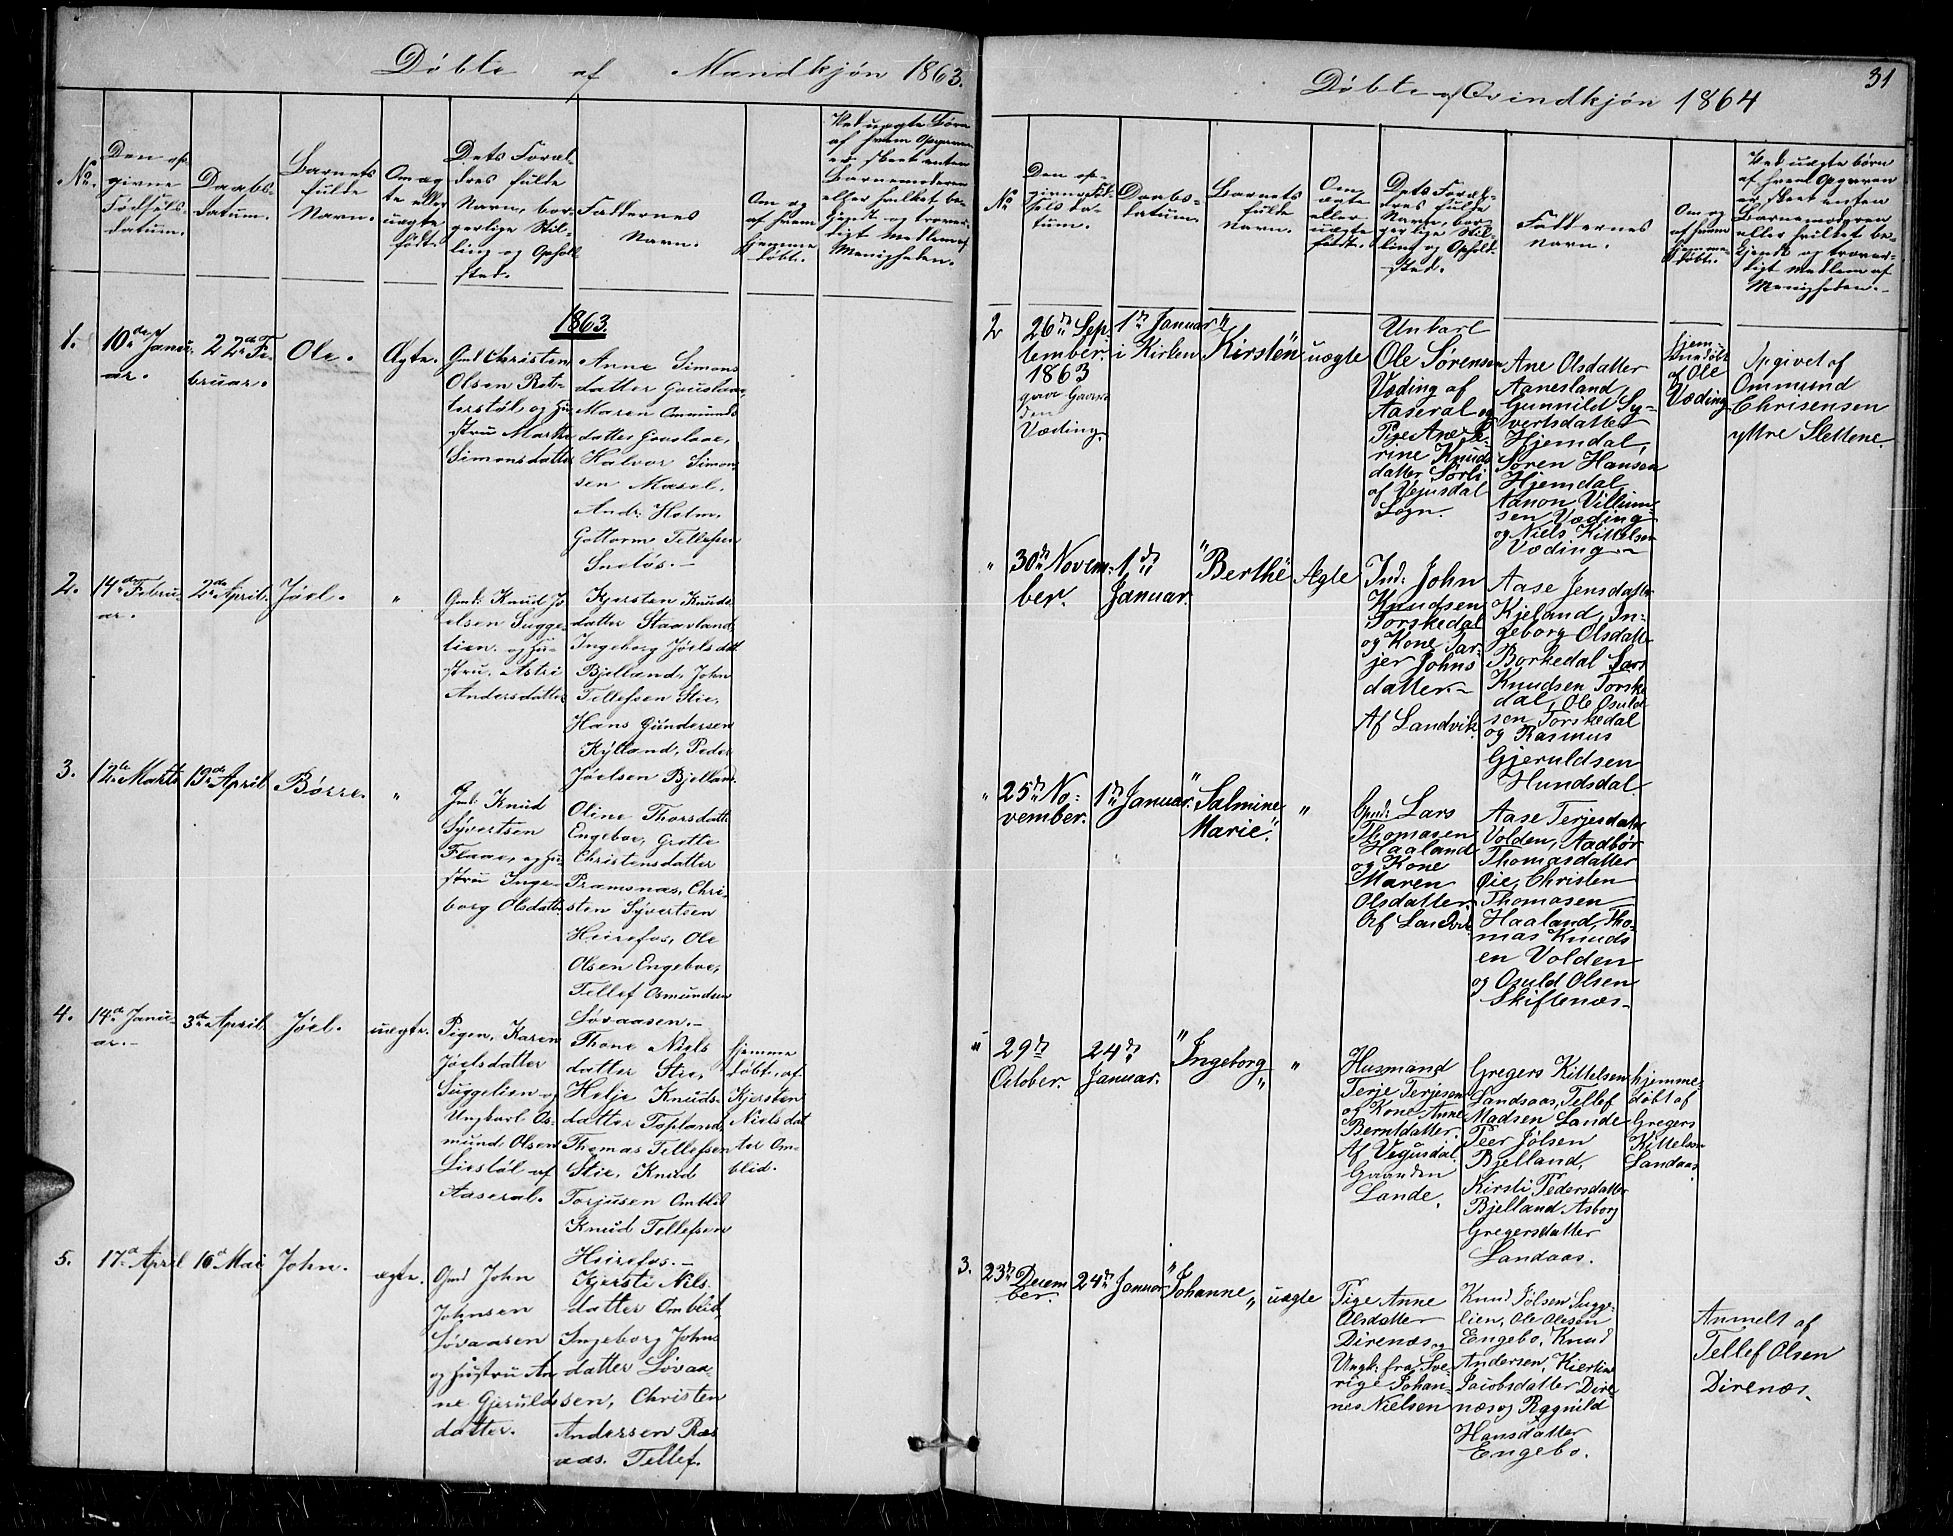 Døbte af Mandkjøn 1863.
No.
Den op-
givne
Fødsels-
datum.
Daabs-
datum.
Barnets
fulde
Navn.
Om æg-
te eller
uægte
født.
Dets Foræl-
dres fulde
Navn, bor-
gerlige Stil-
ling og Ophold
sted.
Faddernes
Navn.
Om og
af hvem
hjemme
døbt.
Ved uægte Børn
af hvem Opgaven
er skeet enten
Barnemoderen
eller hvilket be-
kjendt og trovær-
digt Medlem af
Menigheden.
1863.
1.
10de Janu-
ar.
22de Fe-
bruar.
Ole.
Ægte.
Gmd Christen
Olsen Ret-
terstøl og Hu-
stru Marthe
Simonsdatter
Anne Simons
datter Gouslaae,
Maren Omunds
datter Gouslaae,
Halvor Simon-
sen Mæsel,
Andr. Holm,
Gottorm Tellefsen
Sneløs.-
2.
14de Febru-
ar.
2de April.
Jöel.
"
Gmd: Knud Jö
elsen Sugge-
lien. og Hu-
stru, Astri
Andersdatter
Kjersten Knuds
datter Staavland,
Ingeborg Jöelsdat
Bjelland, John
Tellefsen Stie,
Hans Gundersen
Kylland, Peder
Jöelsen Bjelland.
3.
12te Marts
19de April
Børre.
"
Gmd: Knud
Syvertsen
Flaae, og Hu-
stru Inge-
borg Olsdatter
Oline Thorsdatter
Engeboe, Grethe
Christensdatter
Pramsnæs, Chri-
sten Syvertsen
Heirefos, Ole
Olsen Engeboe,
Tellef Osmundsen
Løvaasen.-
4.
14de Janu-
ar.-
3de April.
Jöel.
uægte.
Pigen, Karen
Jöelsdatter
Suggelien og
Ungkarl Os-
mund Olsen
Liestøl af
Aaseral.
Thone Niels
datter Stie,
Helje Knuds-
datter Topland,
Thomas Tellefsen
Stie, Knud
Torjusen Omblid
Knud Tellefsen
Heirefos.-
hjemme
døbt, af
Kjersten
Niels dat
ter Om-
blid.
5.
17de April
16de Mai
John.
ægte.
Gmd John
Johnsen
Løvaasen
og Hustru An
ne Gjerulds
datter.
Kjersti Nils
datter Omblid,
Ingeborg Johns
datter Løvaa-
sen, Christen
Andersen Ræs
aas. Tellef.
Døbte af Qvindkjøn 1864
31
No
Den op-
givne Fød-
selsda-
tum.
Daabs-
datum.
Barnets
fulde
Navn.
Om
ægte
eller
uægte
født.
Dets Foræl-
dres fulde
Navn, bor-
gerlige Stil-
ling og Ophold-
sted.
Faddernes
Navn.
Om og
af hvem
hjemme-
døbt.
Ved uægte børn
af hvem Opgaven
er skeet enten
Barnemoderen
eller hvilket be-
kjendt og trovær-
digt Medlem af
Menigheden.
2
26de Sep-
tember.
1863
paa Gaar-
den
Væding.
1de Januar
i Kirken
"Kirsten"
uægte
Unkarl
Ole Sørensen
Væding af
Aaseral og
Pige Ane Se-
rine Knuds
datter Sørli
af Vejusdal
Sogn.
Ane Olsdatter
Aanesland,
Gunnild Sy-
vertsdatter
Hjemdal,
Søren Hansen
Hjemdal
Aanon Villum-
sen Væding
og Niels Kittelsen
Væding-
hjem-
medøbt
af Ole
Væding
Opgivet af
Ommund
Chrisensen
yttre Slettene
"
30de Novem-
ber.
1de
Januar.
"Berthe"
Ægte
Ind: John
Knudsen
Torskedal
og Kone Tar-
jer Johns
datter.-
Af Landvik
Aase Jensdatter
Kjeland, In-
geborg Olsdatter
Borkedal Lars
Knudsen Torske
dal, Ole Osuld
sen Torskedal
og Rasmus
Gjeruldsen
Hundsdal.
"
25de No-
vember.
1de Januar.
"Salmine
Marie".
"
Gmd: Lars
Thomasen
Haaland
og Kone
Maren
Olsdatter.
Af Landvik
Aase Terjesdatter
Volden, Aadbør
Thomasdatter
Øie, Christen
Thomasen
Haaland, Tho-
mas Knuds
en Volden
og Osuld Olsen
Skiftenæs-
"
29de
October.
24de
Januar.
"Ingeborg"
"
Husmand
Terje Terjesen
og Kone Anne
Berntdatter.
Af Vegusdal.
Gaarden
Lande.
Gregers Kittelsen
Landsaas, Tellef
Madsen Lande
Peer Jølsen
Bjelland,
Kirsti Pedersdatter
Bjelland Asborg
Gregersdatter
Landaas.
hjemme-
døbt af
Gregers
Kittelsen
Landaas
3.
23de Decem
ber.
24de Januar
"Johanne"
uægte
Pige Anne
Olsdatter
Direnæs og
Ungk: fra Sve-
rige Johan-
nes Nielsen
Knud Jølsen Sugge-
lien, Ole Olesen
Engebo, Knud
Andersen, Kiertine
Jacobsdatter Dire-
næs og Ragnild
Hansdatter
Engebo.
Anmelt af
Tellef Olsen
Direnæs.